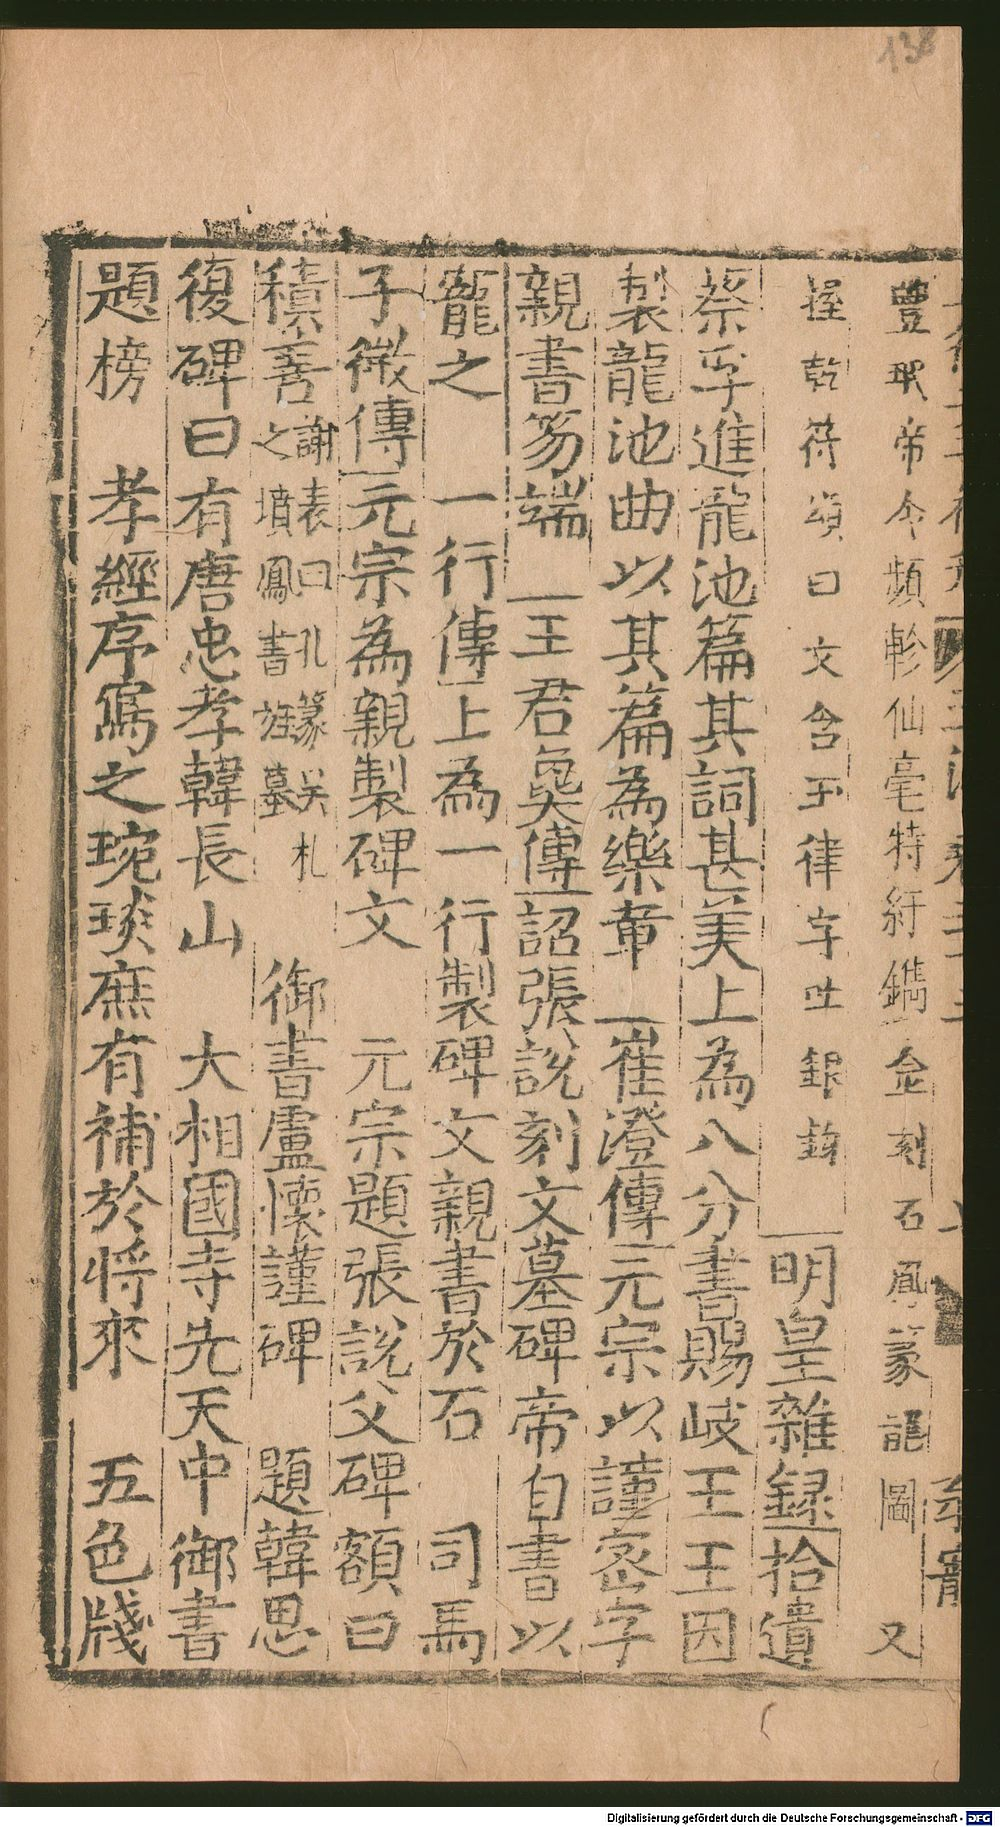 豊珉帝令頻軫仙毫特紆鐫金刻石鳳篆龍圖　又
握乾符頌曰文含玉律字吐銀鉤　明皇雜録拾遺
蔡孚進龍池篇其詞甚美上為八分書賜岐王王因
製龍池曲以其篇為樂章　崔澄傳元宗以謹密字
親書笏端　王君㚟傳詔張説刻文墓碑帝自書以
寵之　一行傳上為一行製碑文親書於石　司馬
子微傳元宗為親製碑文　元宗題張説父碑額曰
積善
謝表曰孔篆吴札
之墳鳳書旌墓
御書盧懷謹碑　題韓思
復碑曰有唐忠孝韓長山　大相國寺先天中御書
題榜　孝經序寫之琬琰庶有補於将來　五色牋
138
Digitalisierung gefördert durch die Deutsche Forschungsgemeinschaft - DFG